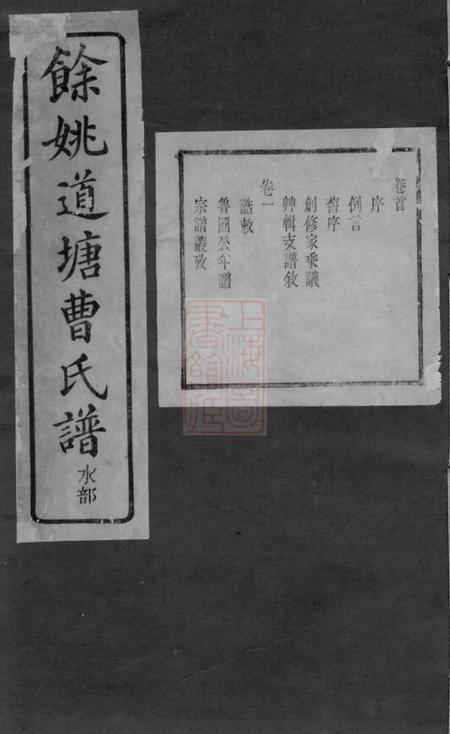 餘姚道塘曹氏譜
水部
卷首
序
例言
舊序
創修家乘議
艸輯支譜敘
卷一
誥敕
魯國公年譜
宗譜叢攷
上海圖書館藏